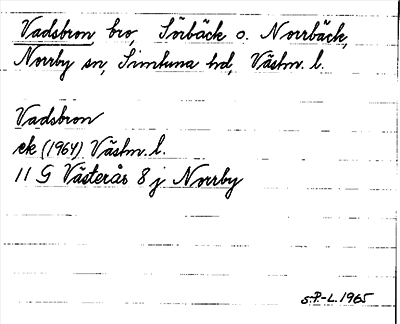 Vadsbron bro, Sörbäck o. Norrbäck,
Norrby sn, Simtuna hd, Västm. l.
Vadsbron
ek (1964) Västm. l.
11 G Västerås 8 j Norrby
S.P-L. 1965